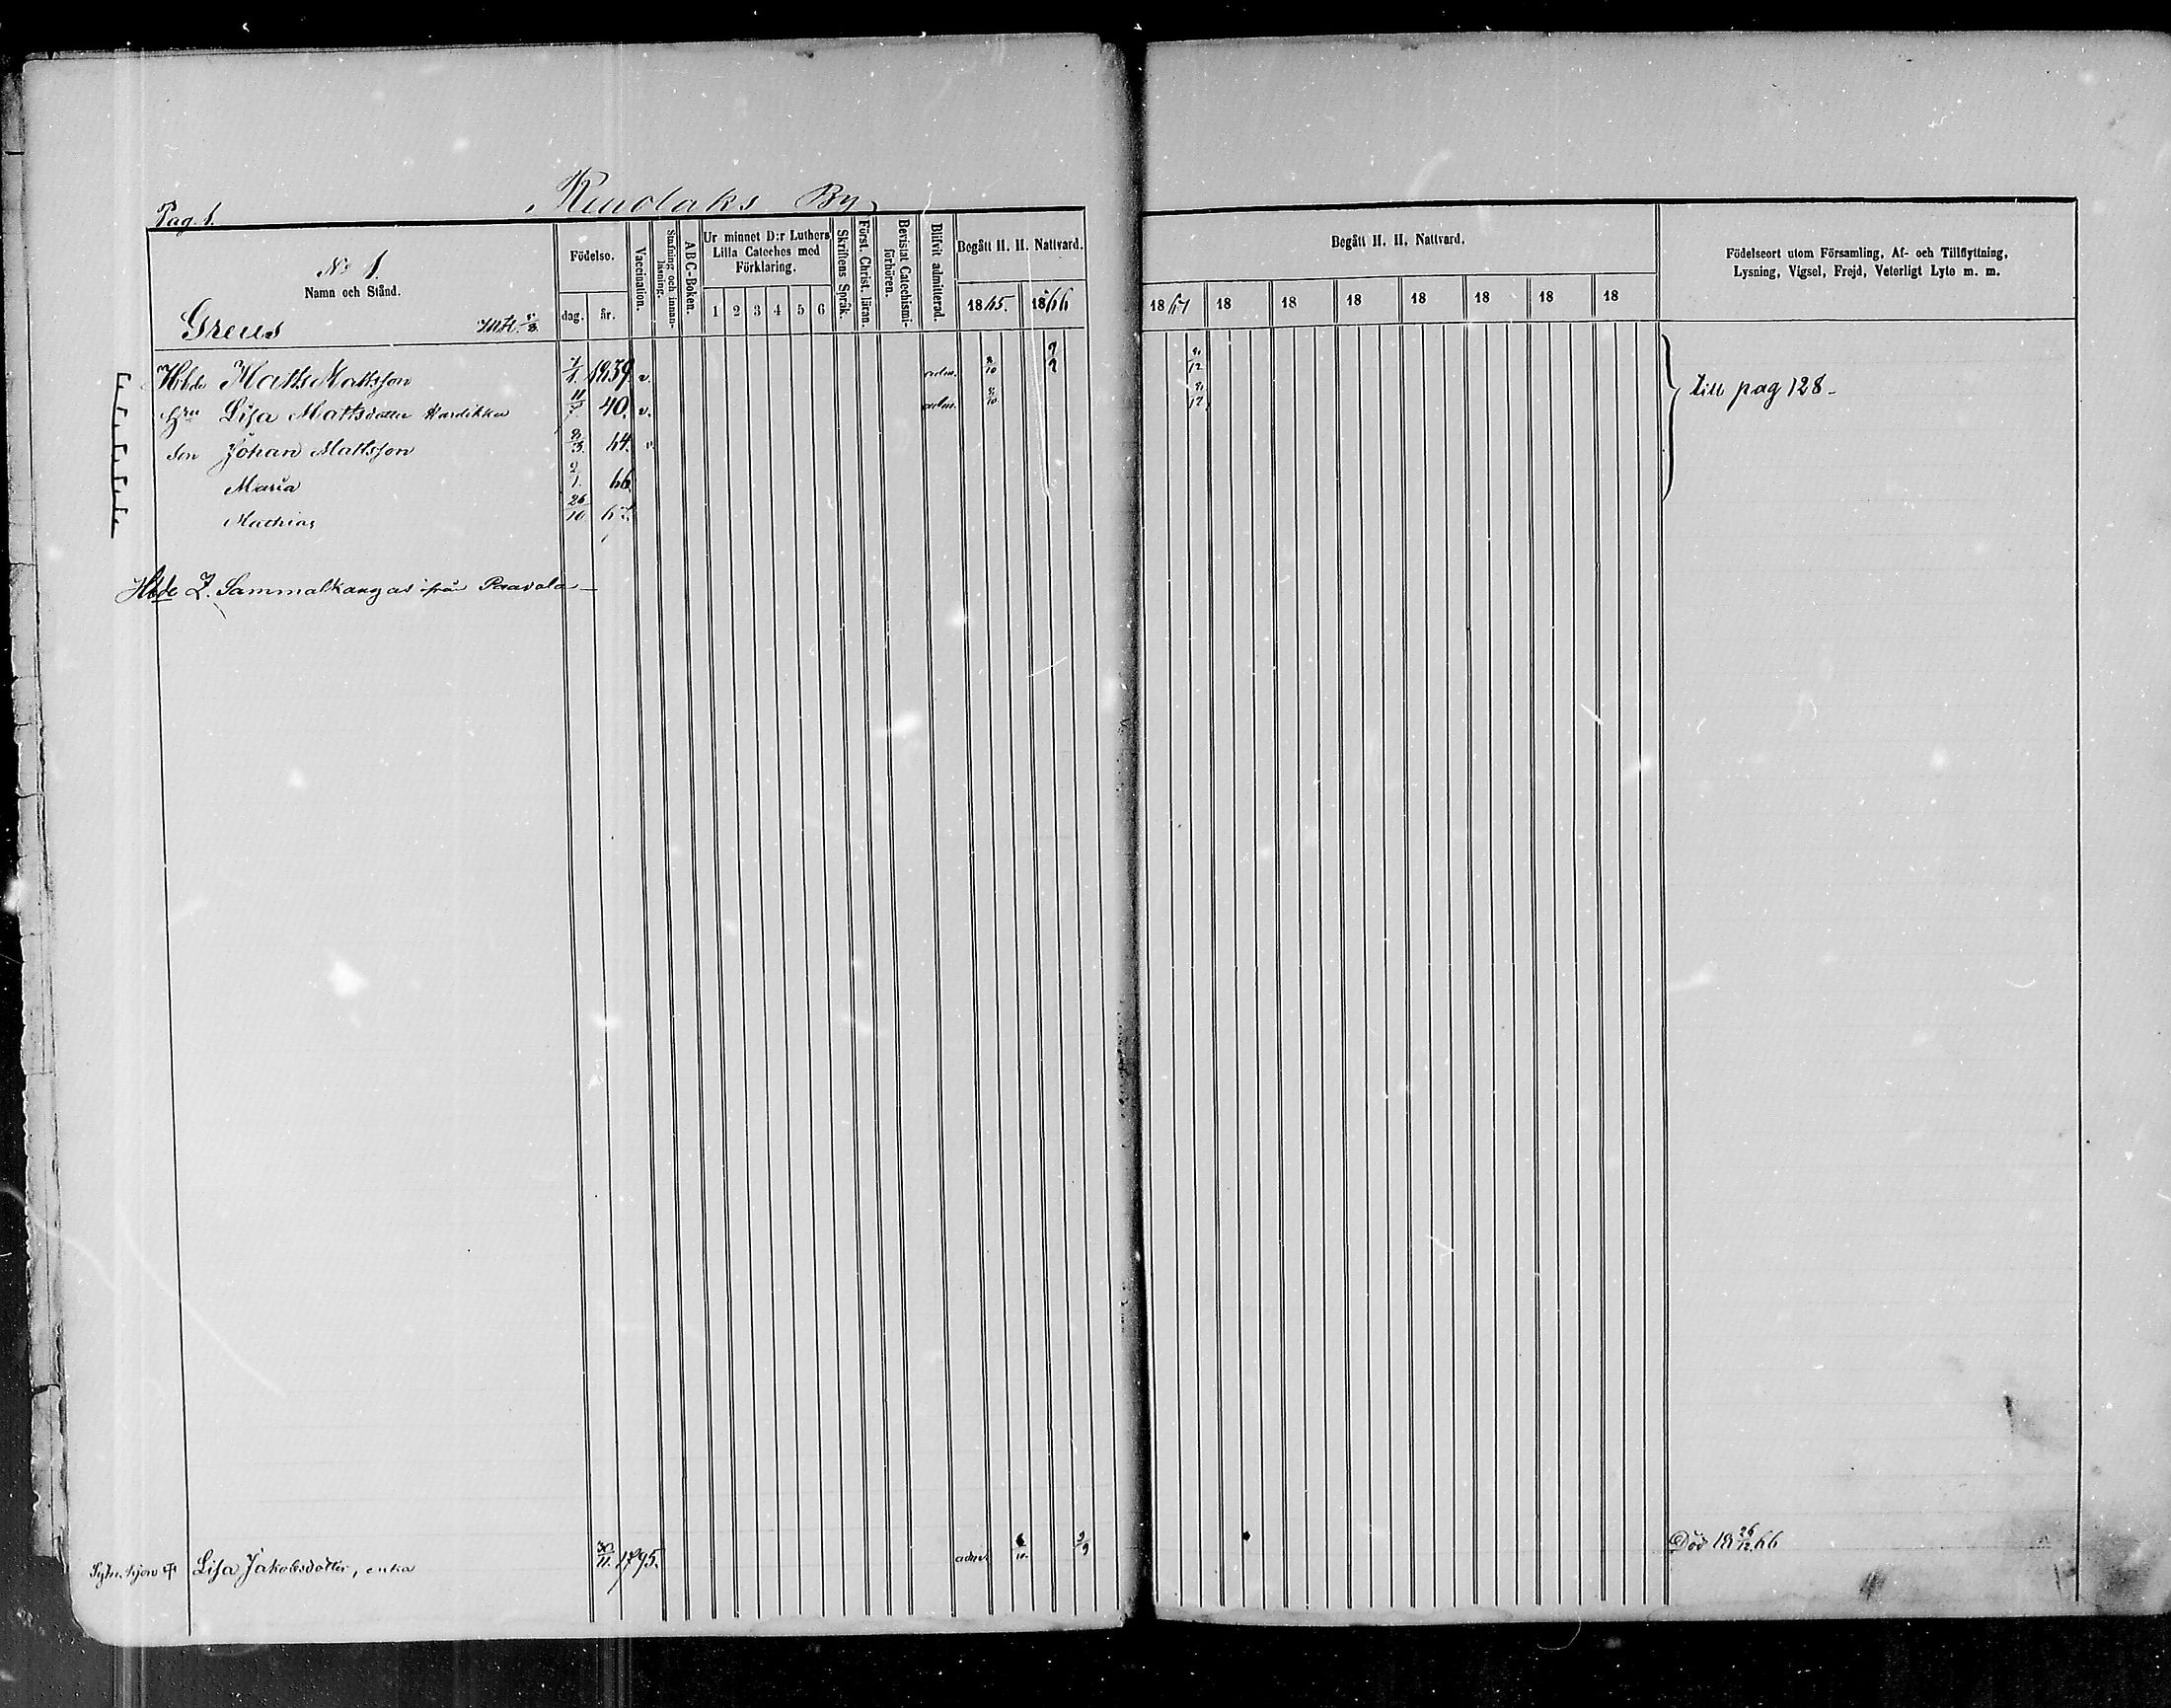 Pag. 1.
By
No 1.
Namn och Stånd.
Födelse.
dag. år.
Vaccination.
Stafning och innanläsning.
ABC-Boken.
Ur minnet D:r Luthers Lilla Cateches med Förklaring.
1 2 3 4 5 6
Skriftens Språk.
Först. Christ. läran.
Bevistat Catechismiförhören.
Blifvit admitterad.
Begått H. H. Nattvard.
1865. 1866
Begått H. H. Nattvard.
1867 18 18 18 18 18 18 18
Födelseort utom Församling, Af- och Tillflyttning,
Lysning, Vigsel, Frejd, Veterligt Lyte m. m.
Greus
Matts Mattsson 1839 v. adm. 8/10 9/12
till pag 128
Hru Lisa Mattsdotter 11/7 40. v. adm. 8/10 12
Son Johan Mattsson 8/3 64. v.
Maria 2/1. 66
Mathias 26/10 67.
Hbde Z. Sammalkangas från Paavola
Lisa Jakobsdotter, enka 30/11. 1795. adm. 6/10. 2/9
Död 18 26/12 66